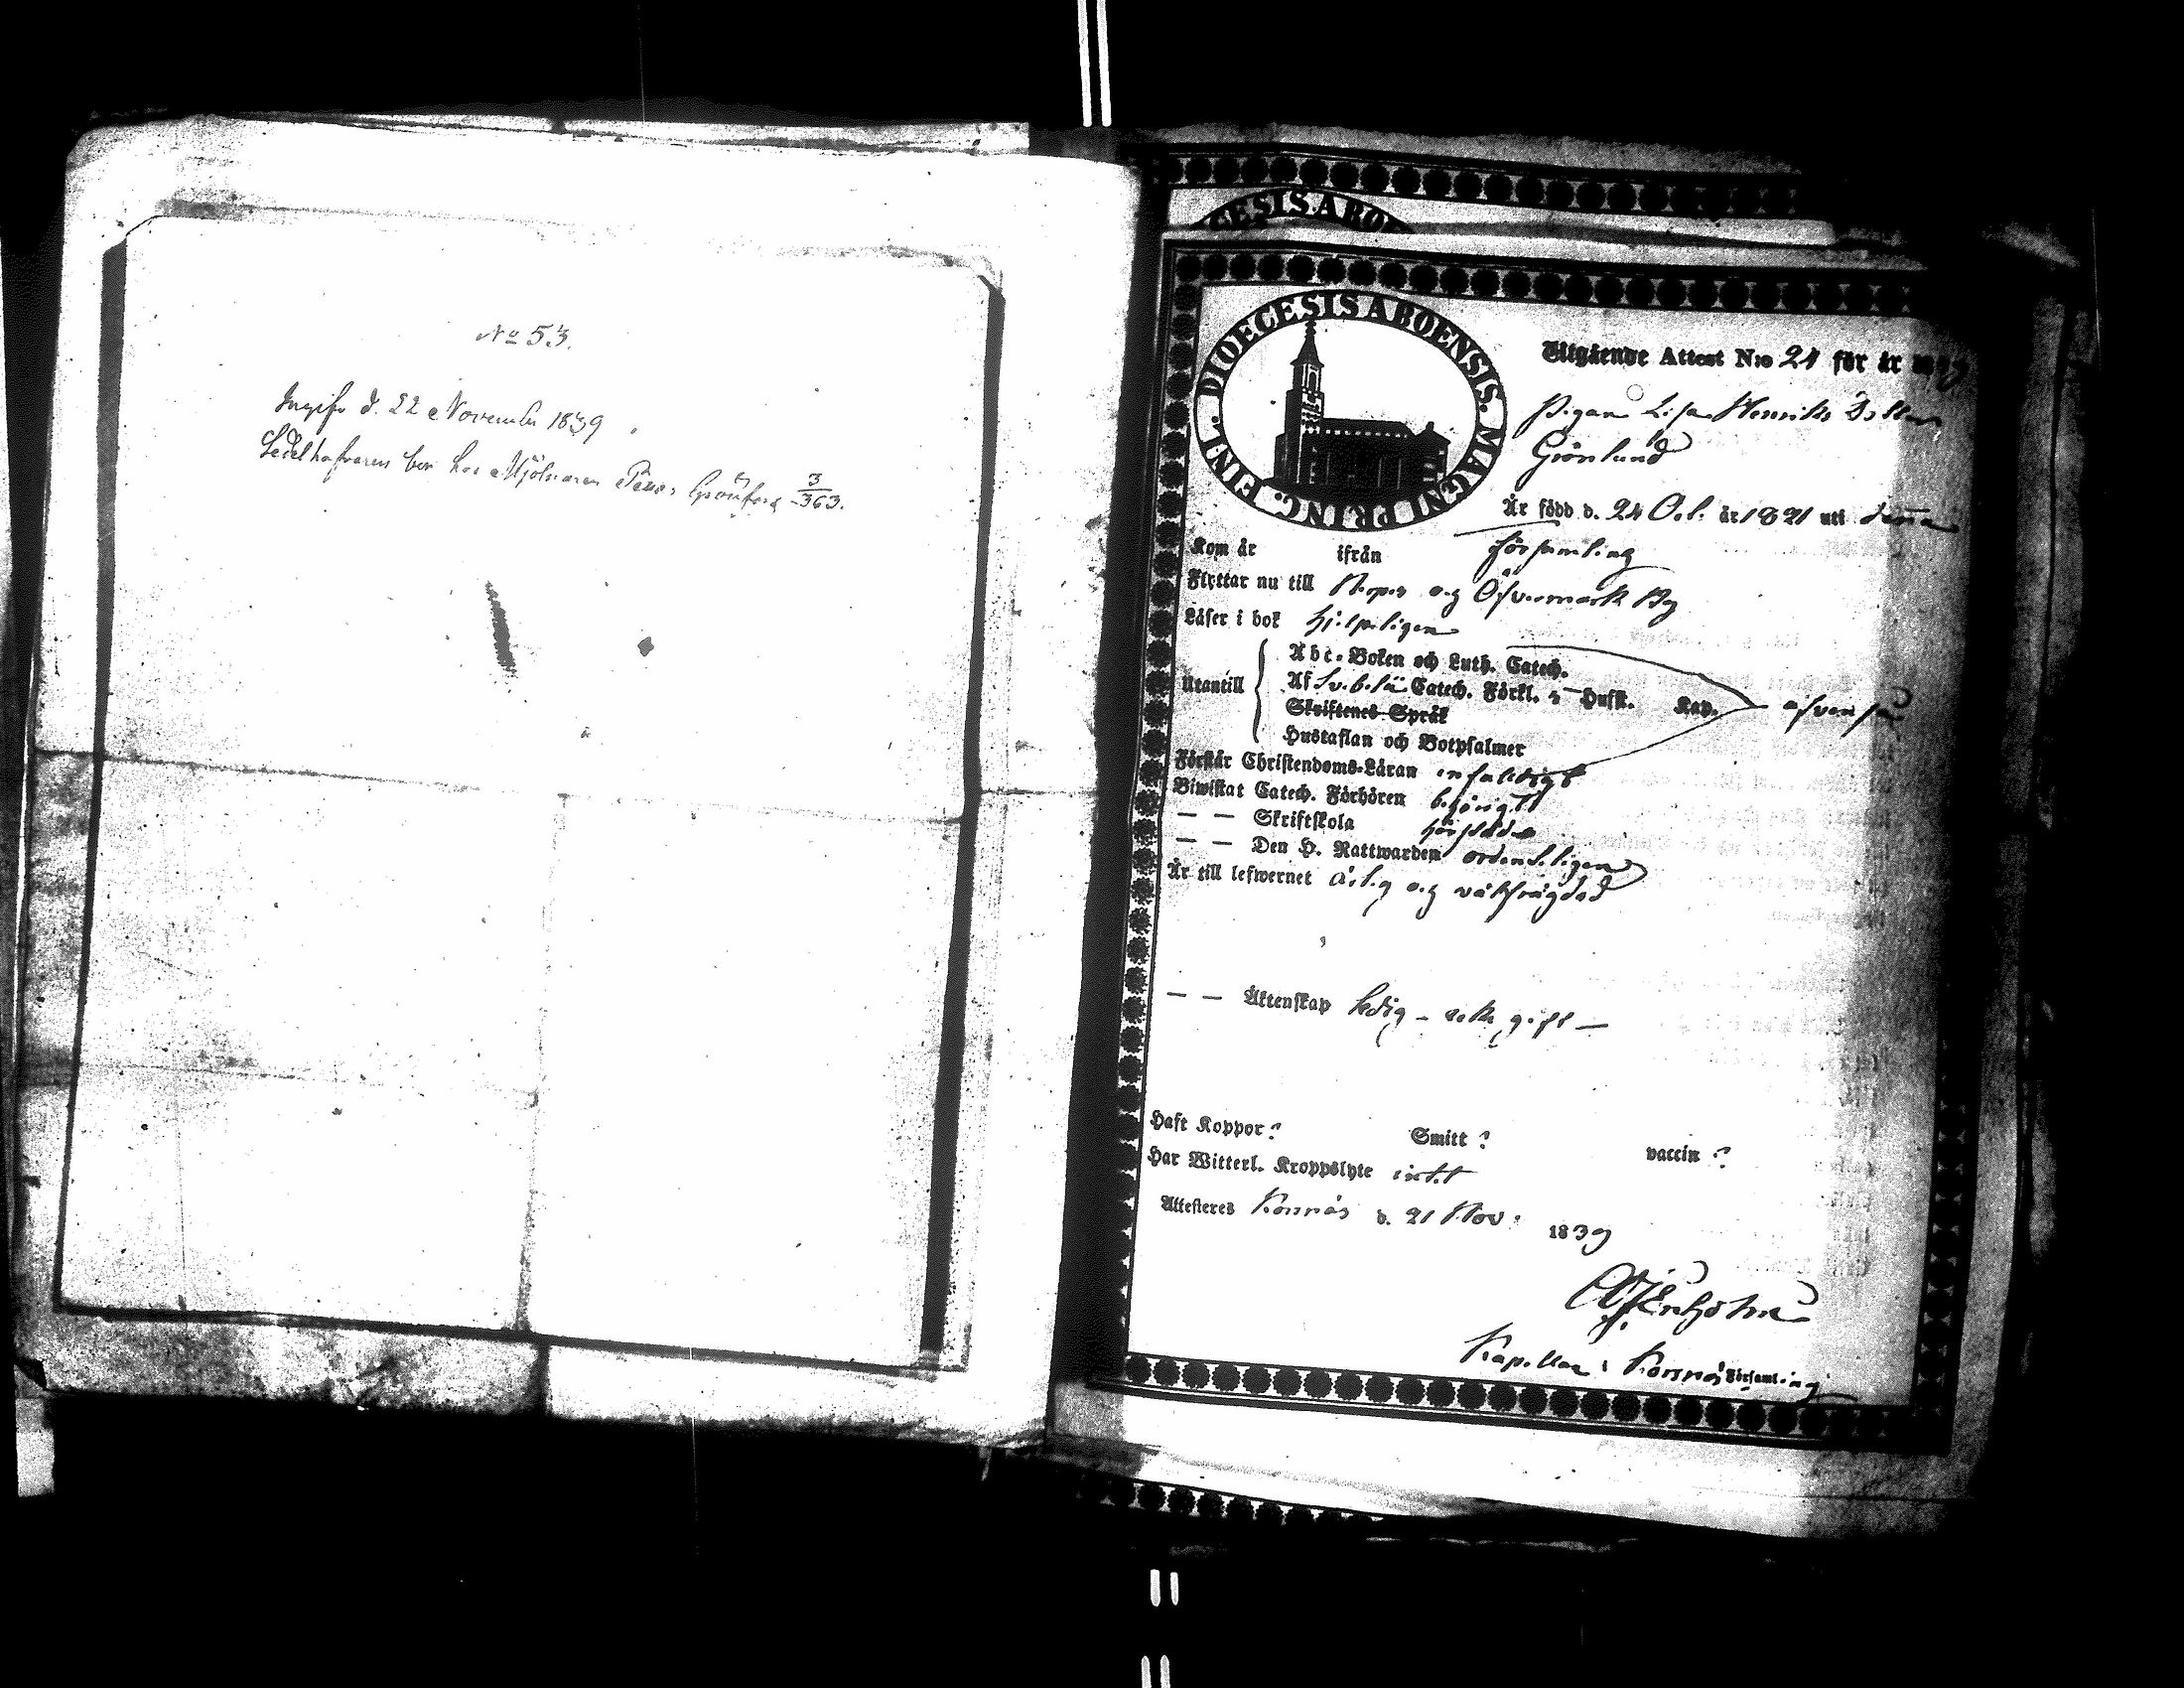 No 53.
Ingifv. d. 22 November 1839
Sedelhafvaren bor hos Mjölnaren 3/363.
CESIS ABO
DIOECESIS ABOENSIS. MAGNI PRINC. FINL.
Utgående Attest N:o 24 för år
Pigan Lisa Henriks Dotter
Grönlund
Är född d. 24 Oct. år 1821 uti denna
Kom år ifrån församling
Flyttar nu till och Öfvermark By
Läser i bok hjelpligen
Abc-Boken och Luth. Catech.
Utantill Af Svebelii Catech. Förkl. 3 Hufst. Kap. äfvenså
Skriftenes Språk
Hustaflan och Botpsalmer
Förstår Christendoms-Läran enfaldigt
Biwistat Catech. Förhören behörigt
— — Skriftskola
— — Den H. Nattwarden ordentligen
Är till lefwernet ärlig och välfrägdad
— — Äktenskap ledig – icke gift —
Haft Koppor? Smitt? vaccin?
Har Witterl. Kroppslyte intet
Attesteres Korsnäs d. 21 Nov. 1839
Enholm
Kapellan i Korsnäs Församling